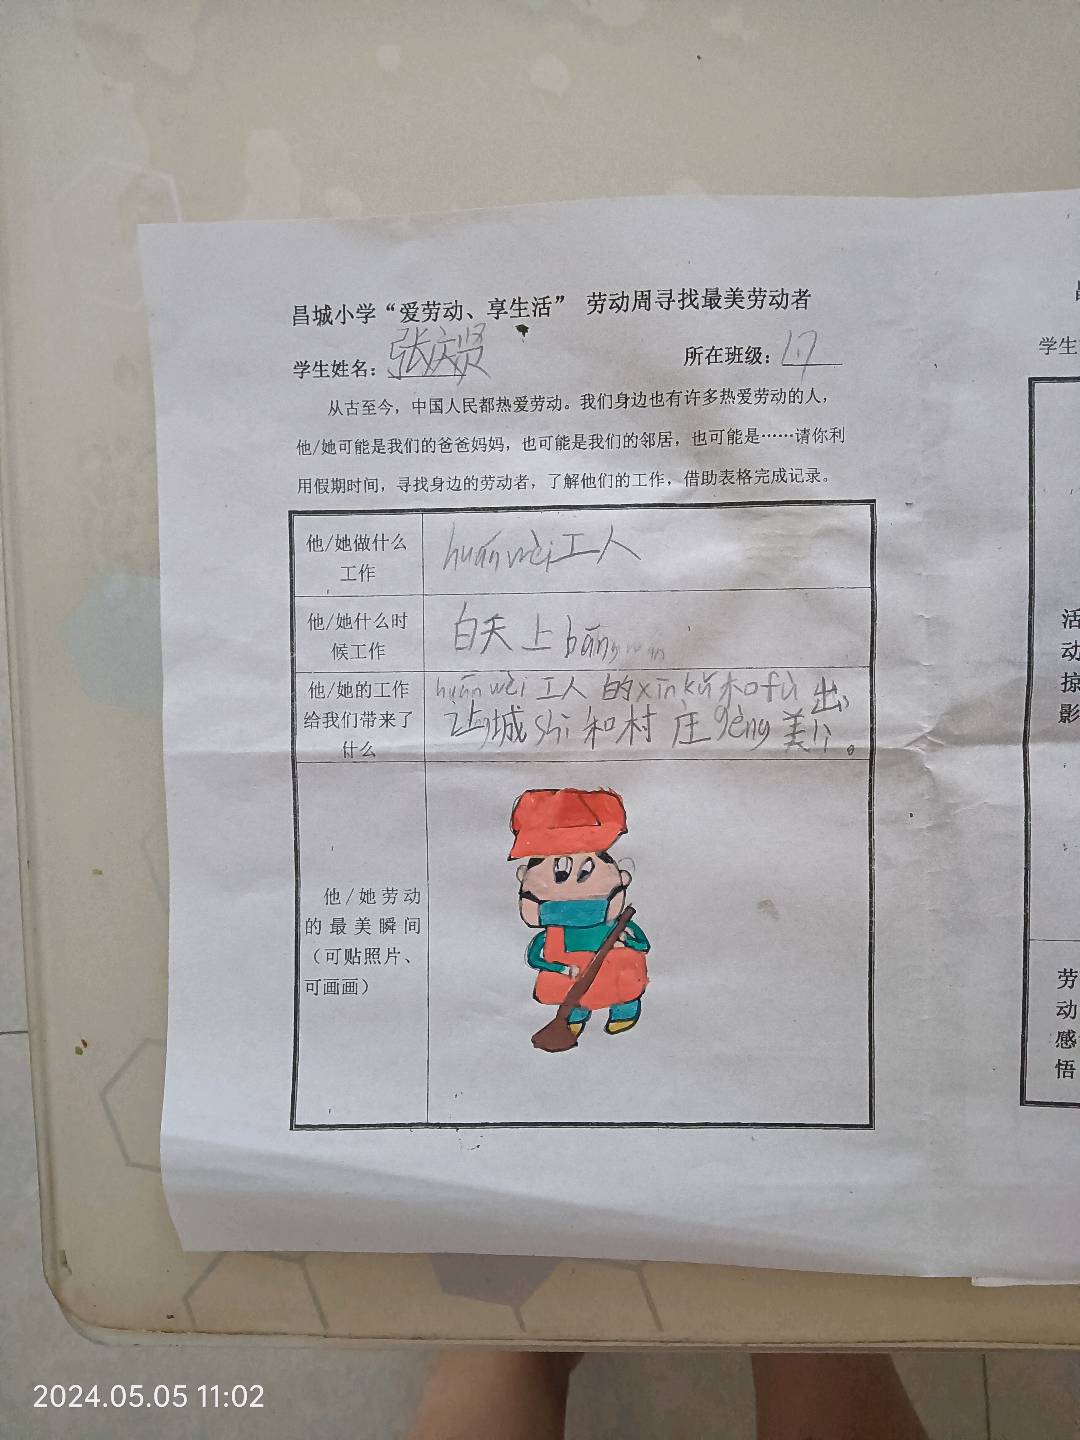 昌城小学“爱劳动、享生活” 劳动周寻找最美劳动者
学生姓名：张庆贤 所在班级：1.7
从古至今，中国人民都热爱劳动。我们身边也有许多热爱劳动的人，
他/她可能是我们的爸爸妈妈，也可能是我们的邻居，也可能是……请你利
用假期时间，寻找身边的劳动者，了解他们的工作，借助表格完成记录。
他/她做什么
工作
huán wèi 工人
他/她什么时
候工作
白天 上 bāng wǎn
他/她的工作
给我们带来了
什么
huán wèi 工人 的 xīn kǔ 木 fù 出
让城 shì 和村 庄 gèng 美
他/她劳动
的最美瞬间
（可贴照片、
可画画）
学生
活
动
掠
影
劳
动
感
悟
2024.05.05 11:02